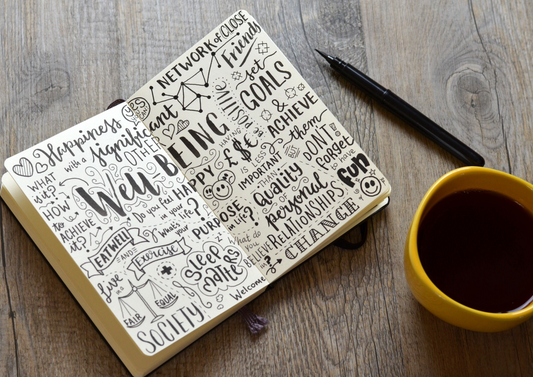 Happiness
with a significant
OTHER
YES
WHAT
is it?
HOW
to
ACHIEVE
it?
Well BEING
Do you feel
in your
What's your
life?
EAT WELL
AND
Exercise
Live in a
FAIR
EQUAL
SOCIETY
Sleep
MATTERS
Welcome
NETWORK of CLOSE
Friends
set
GOALS
& ACHIEVE
them
HAVING
£ $ €
IS LESS
IMPORTANT
THAN
Quality
of
personal
RELATIONSHIPS
DON'T
forget
to have
fun
HAPPY
PURPOSE
in life?
What do
you
BELIEVE
in?
CHANGE